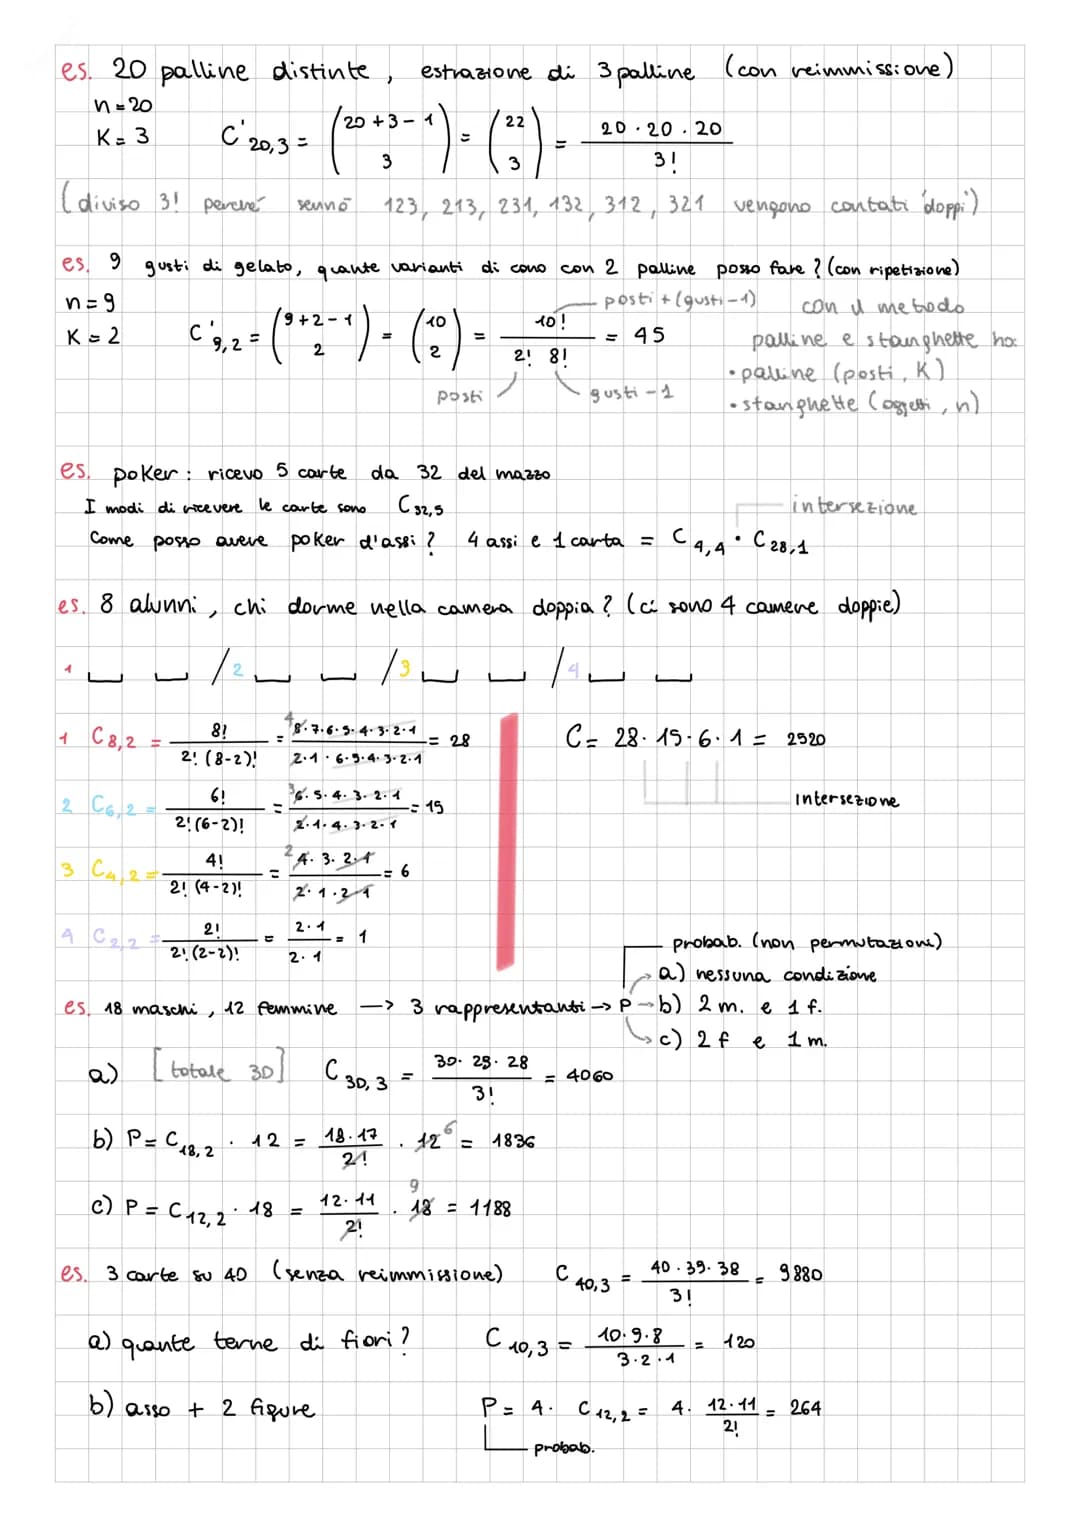 es. 20 palline distinte, estrazione di 3 palline (con reimmissione)
n = 20
K = 3 C'20,3 = (20+3-1 3) = (22 3) = 20·20·20 / 3!
(diviso 3! perché sennò 123, 213, 231, 132, 312, 321 vengono contati 'doppi')
es. 9 gusti di gelato, quante varianti di cono con 2 palline posso fare? (con ripetizione)
n = 9
K = 2 C'9,2 = (9+2-1 2) = (10 2) = 10! / 2! 8! = 45
posti + (gusti-1)
posti gusti-1
con il metodo
palline e stanghette ho:
• palline (posti, K)
• stanghette (oggetti, n)
es. poker: ricevo 5 carte da 32 del mazzo
I modi di ricevere le carte sono C32,5
intersezione
Come posso avere poker d'assi? 4 assi e 1 carta = C4,4 · C28,1
es. 8 alunni, chi dorme nella camera doppia? (ci sono 4 camere doppie)
1 _ _ / 2 _ _ / 3 _ _ / 4 _ _
1 C8,2 = 8! / 2!(8-2)! = 8·7·6·5·4·3·2·1 / 2·1·6·5·4·3·2·1 = 28
4
2 C6,2 = 6! / 2!(6-2)! = 6·5·4·3·2·1 / 2·1·4·3·2·1 = 15
3
3 C4,2 = 4! / 2!(4-2)! = 4·3·2·1 / 2·1·2·1 = 6
2
4 C2,2 = 2! / 2!(2-2)! = 2·1 / 2·1 = 1
C = 28·15·6·1 = 2520
intersezione
probab. (non permutazioni)
a) nessuna condizione
es. 18 maschi, 12 femmine —> 3 rappresentanti -> P -> b) 2 m. e 1 f.
c) 2 f e 1 m.
a) [totale 30] C30,3 = 30·29·28 / 3! = 4060
b) P = C18,2 · 12 = 18·17 / 2! · 12 6 = 1836
c) P = C12,2 · 18 = 12·11 / 2! · 18 9 = 1188
es. 3 carte su 40 (senza reimmissione) C40,3 = 40·39·38 / 3! = 9880
a) quante terne di fiori? C10,3 = 10·9·8 / 3·2·1 = 120
b) asso + 2 figure P = 4· C12,2 = 4· 12·11 / 2! = 264
probab.